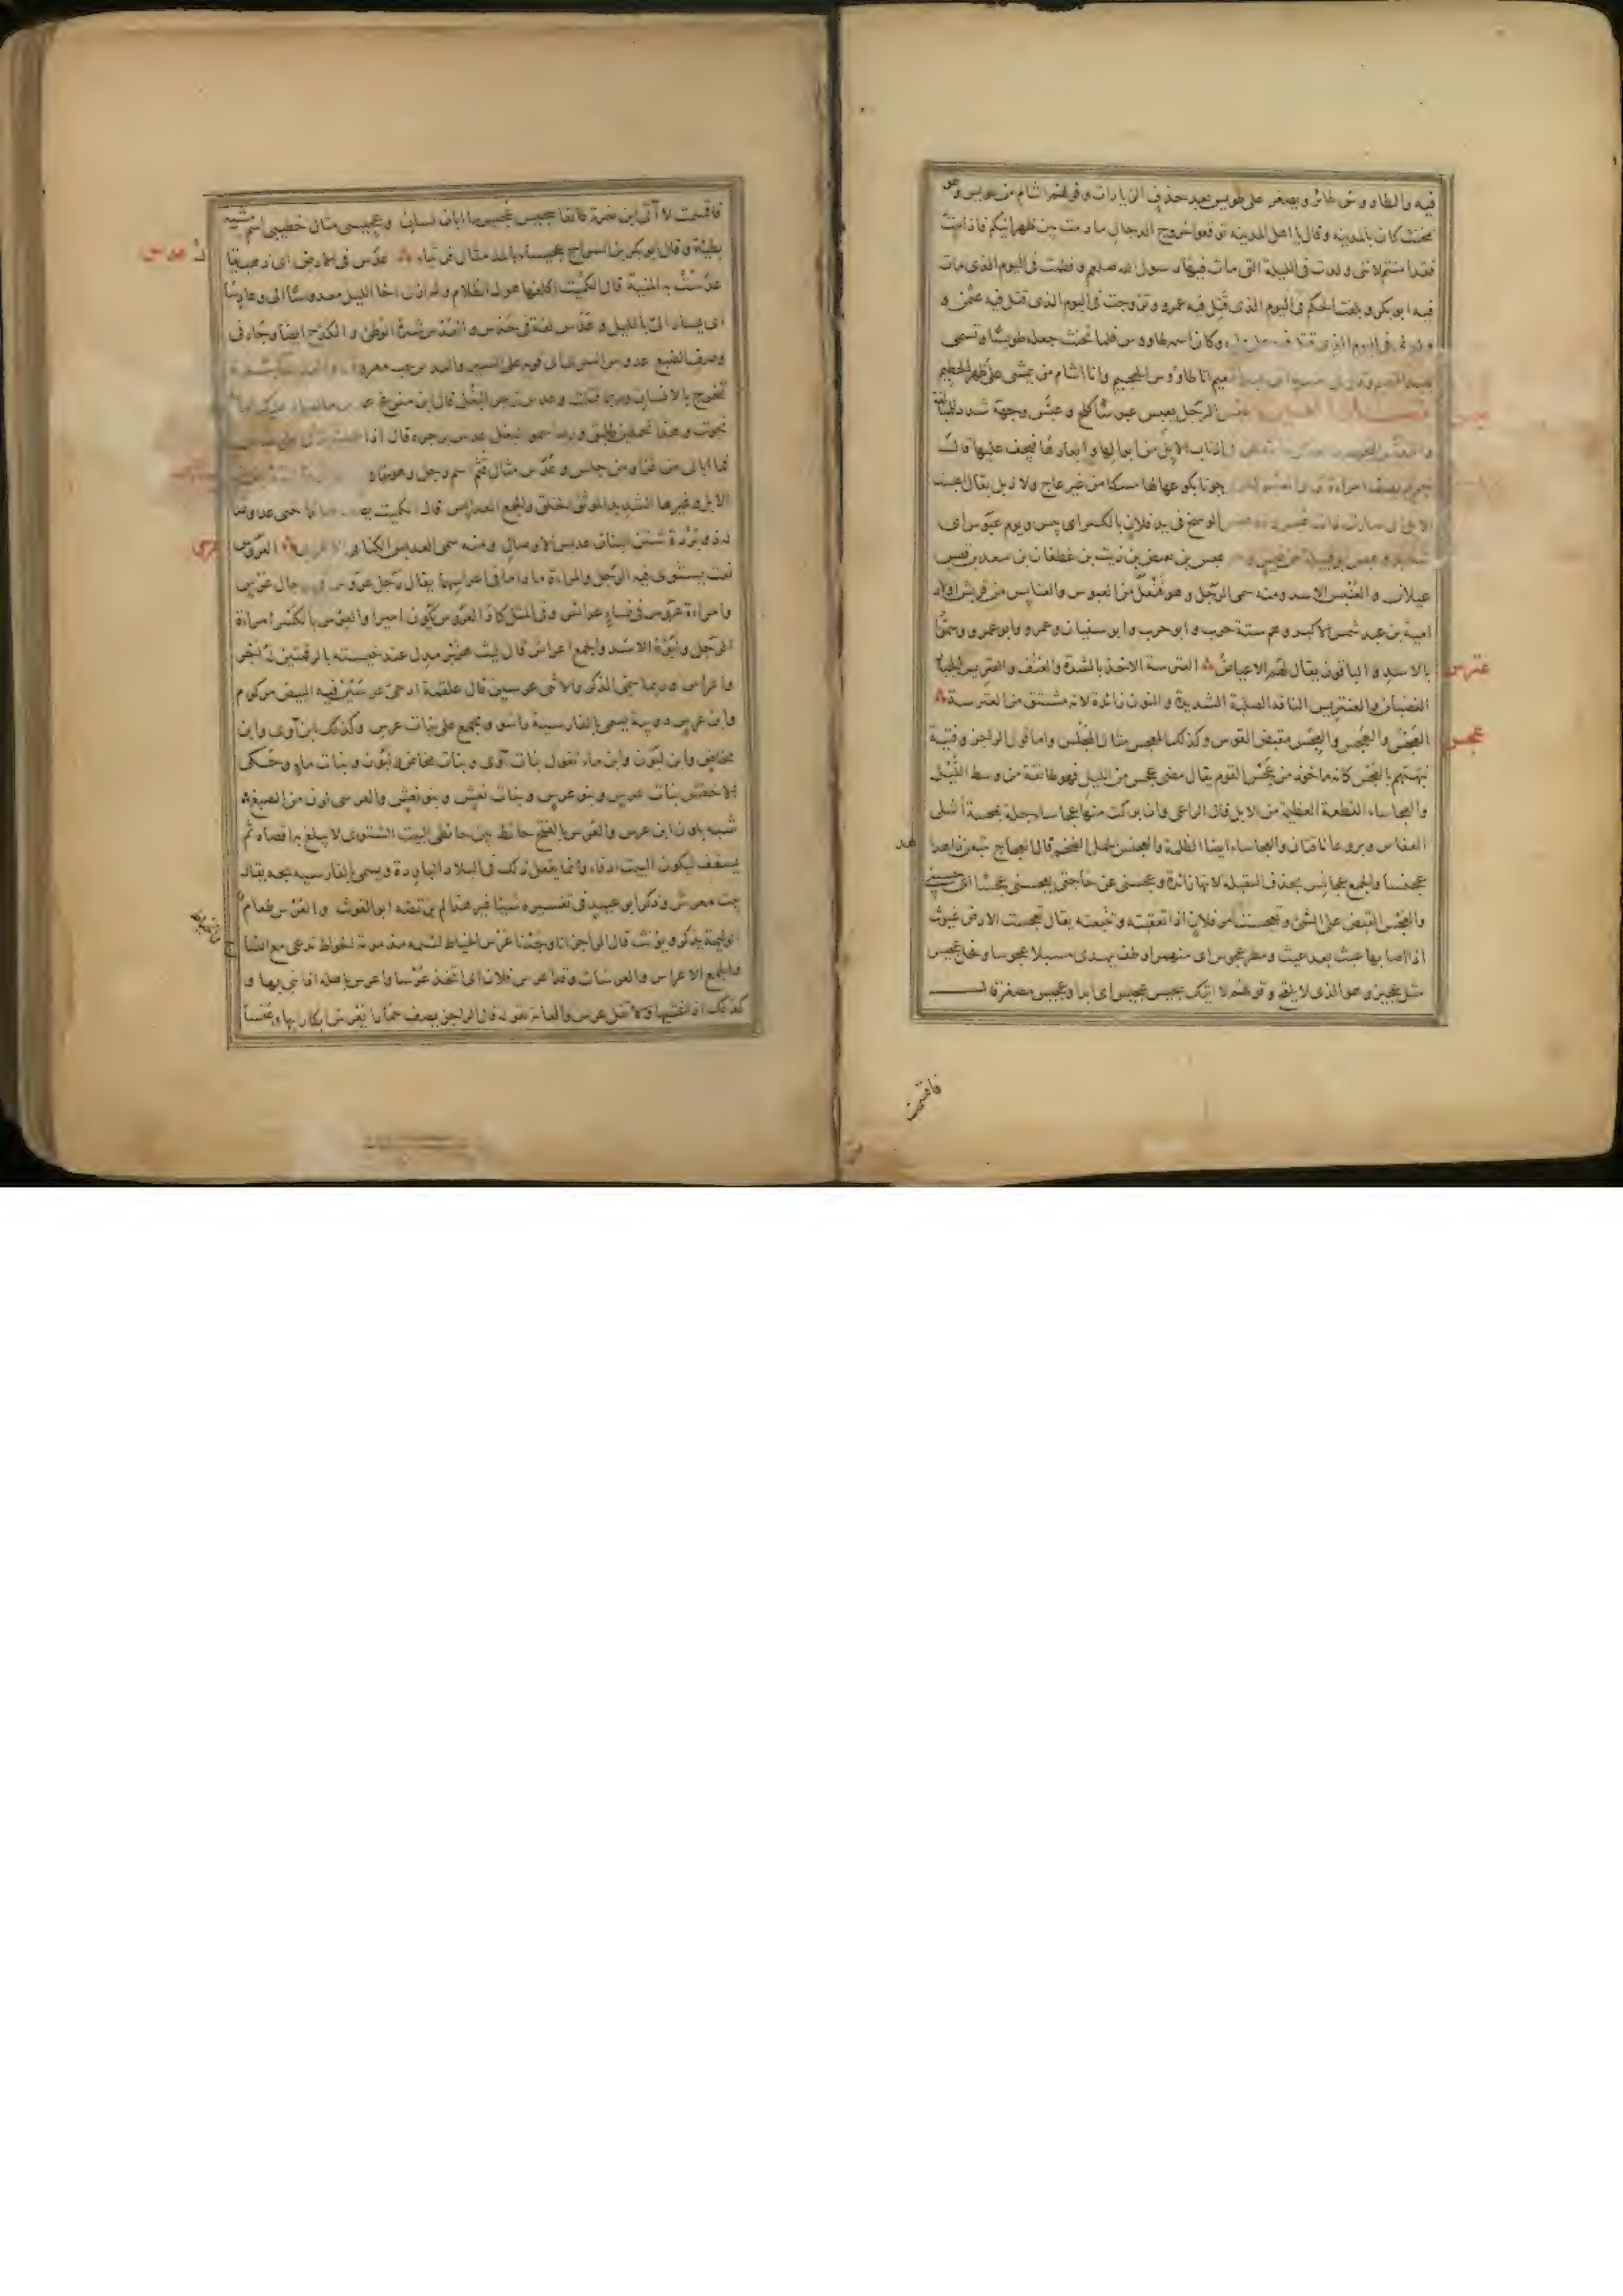 فيه والطاوس طائر ويصغر على طويس بعد حذف الزيادات وقولهم اشام من طويس وهو
مخنث كان بالمدينة وقال يا اهل المدينة توقعوا خروج الدجال ما دمت بين ظهرانيكم فاذا مت
فقد امنتم لانى ولدت فى الليلة التى مات فيها رسول الله صلعم وفطمت فى اليوم الذى مات
فيه ابو بكر وبلغت الحكم فى اليوم الذى قتل فيه عمر وتزوجت فى اليوم الذى قتل فيه عثمن و
ولد لى فى اليوم الذى قتل فيه على وكان اسمه طاووس فلما تخنث جعله طويسا وتسمى
انا طاووس الجحيم وانا اشام من يمشى على ظهر الحطيم
عبس الرجل يعبس عبوسا كلح وعبس وجهه شدد
اذناب الابل من ابوالها وابعارها فيجف عليها قال
جونا بكوعها لها مسكا من غير عاج ولا ذبل يقال اعبست
الابل اى صارت ذات عبس الوسخ فى يد فلان بالكسر اى يبس ويوم عبوس اى
شديد وعبس ابو قبيلة من قيس وهو عبس بن بغيض بن ريث بن غطفان بن سعد بن قيس
عيلان والعنبس الاسد ومنه سمى الرجل وهو فنعل من العبوس والعنابس من قريش اولاد
امية بن عبد شمس الاكبر وهم ستة حرب وابو حرب وابو سفيان وعمرو وابو عمرو وسموا
بالاسد والباقون يقال لهم الاعياص العترسة الاخذ بالشدة والعنف والعتريس الجبار
عترس
الغضبان والعنتريس الناقة الصلبة الشديدة والنون زائدة لانه مشتق من العترسة
العجس والعجس والعجس مقبض القوس وكذلك المعجس مثال المجلس واما قول الراجز وفتية
عجس
نبهتهم بالعجس كانه ماخوذ من عجس القوم يقال مضى عجس من الليل فهو طائفة من وسط الليل
والعجاساء القطعة العظيمة من الابل قال الراعى وان بركت منها عجاساء جلة بمحنية اشلى
العفاس وبروعا ناقتان والعجاساء ايضا الظلمة والعجنس الجمل الضخم قال العجاج يتبعن ذا هداهد
عجنسا والجمع عجانس بحذف الثقيلة لانها زائدة وعجسنى عن حاجتى يعجسنى عجسا اى حبسنى
والعجس القبض على الشئ وتعجست امر فلان اذا تعقبته وتتبعته يقال تعجست الارض غيوث
اذا اصابها غيث بعد غيث ومطر عجوس اى منهمر اوطف يهدى مسبلا عجوسا وفحل عجيس
مثل عجيز وهو الذى لا يلقح وقولهم لا اتيك سجيس عجيس اى ابدا وعجيس مصغر قال
فاقسمت
فاقسمت لا آتى ابن ضمرة طائعا سجيس عجيس ما ابان لسان وعجيسى مثال خطيبى اسم مشية
بطيئة وقال ابو بكر بن السراج عجيساء بالمد مثال قريثاء عدس فى الارض اى ذهب يقال
عدس
عدست به المنية قال الكميت اكلفها هول الظلام ولم ازل اخا الليل معدوسا الى وعادسا
اى يسار الى بالليل وعدس لغة فى حدس والعدس شدة الوطئ والكدح ايضا وجاء فى
وصف الضبع عدوس السرى اى قوية على السير والعدس حب معروف والعدسة بثرة
تخرج بالانسان وربما قتلت وعدس زجر البغل قال ابن مفرغ عدس ما لعباد عليك امارة
نجوت وهذا تحملين طليق وربما سموا البغل عدس بزجره قال اذا حملت بزتى على عدس
فما ابالى من غزا ومن جلس وعدس مثال قثم اسم رجل وهو
الابل وغيرها الشديد الموثق الخلق والجمع العدابس قال الكميت حتى غدا وغدا
له ذو بردة شثن البنان عدبس الاوصال ومنه سمى العدبس الكنانى الاعرابى العروس
عرس
نعت يستوى فيه الرجل والمراة ما داما فى اعراسهما يقال رجل عروس فى رجال عرس
وامراة عروس فى نساء عرائس وفى المثل كاد العروس يكون اميرا والعرس بالكسر امراة
الرجل ولبوة الاسد والجمع اعراس قال ليث هزبر مدل عند خيسته بالرقمتين له اجر
واعراس وربما سمى الذكر والانثى عرسين قال علقمة ادحى عرسين فيه البيض مركوم
وابن عرس دويبة يسمى بالفارسية راسو ويجمع على بنات عرس وكذلك ابن آوى وابن
مخاض وابن لبون وابن ماء تقول بنات آوى وبنات مخاض ولبون وبنات ماء وحكى
الاخفش بنات عرس وبنو عرس وبنات نعش وبنو نعش والعرسى لون من الصبغ
شبه بلون ابن عرس والعرس بالفتح حائط بين حائطى البيت الشتوى لا يبلغ به اقصاه ثم
يسقف ليكون البيت ادفاء وانما يفعل ذلك فى البلاد الباردة ويسمى بالفارسية بيجه يقال
بيت معرس وذكر ابو عبيد فى تفسيره شيئا غير هذا لم يرتضه ابو الغوث والعرس طعام
الوليمة يذكر ويؤنث قال الراجز انا وجدنا عرس الحناط لئيمة مذمومة الحواط ندعى مع النساج
والجمع الاعراس والعرسات وقد اعرس فلان اى اتخذ عرسا واعرس باهله اذا بنى بها و
كذلك اذا غشيها ولا تقل عرس والعامة تقوله قال الراجز يصف حمارا يعرس ابكارا بها وعنسا